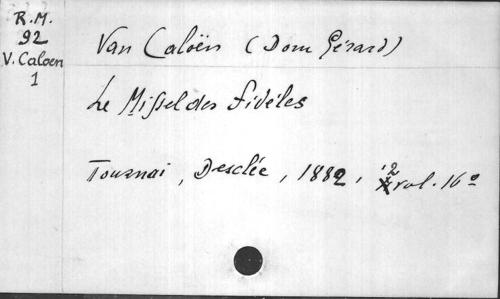 R.M.
92
V. Caloen
1
Van Caloën (Dom Gérard)
Le Missel des fidèles
Tournai, Desclée, 1882, 2 vol. 16º